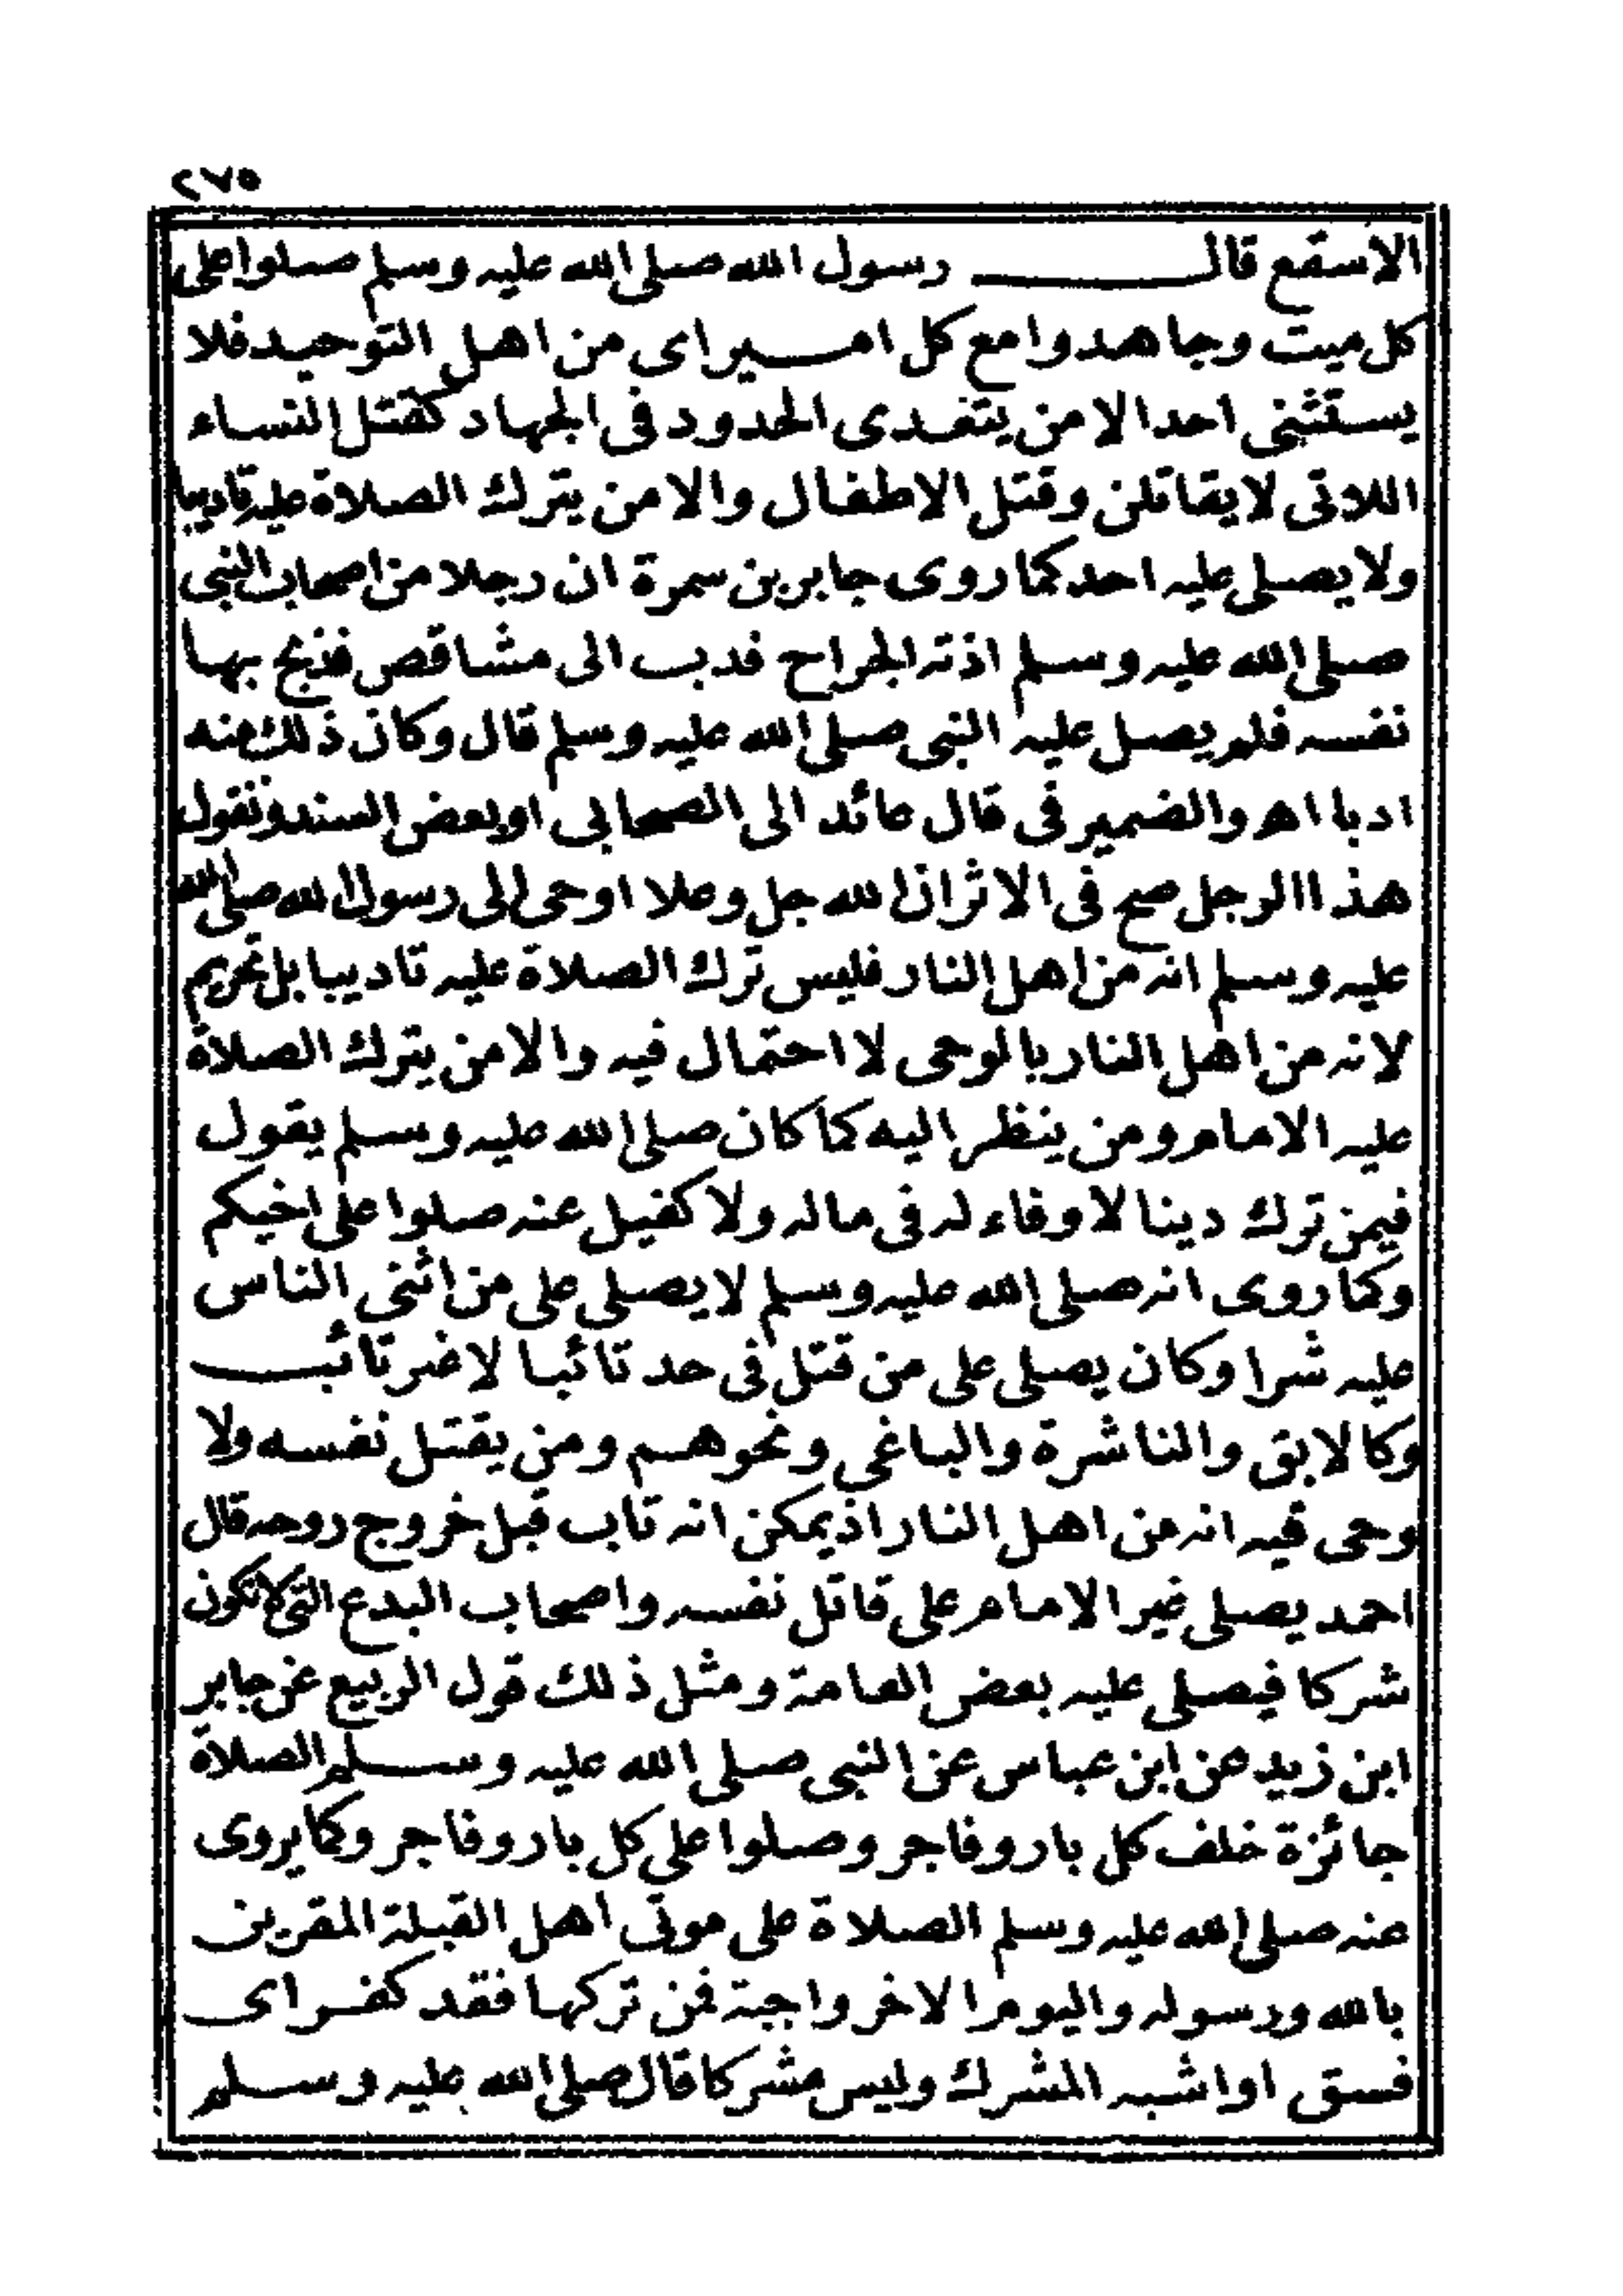 ٢٧٥
الاسقع قال رسول الله صلى الله عليه وسلم صلوا على
كل ميت وجاهدوا مع كل امير اى من اهل التوحيد فلا
يستثنى احد الا من يتعدى الحدود فى الجهاد كقتل النساء
اللاتى لا يقاتلن وقتل الاطفال والا من يترك الصلاة عليه تاديبا
ولا يصلى عليه احد كما روى جابر بن سمرة ان رجلا من اصحاب النبى
صلى الله عليه وسلم اذته الجراح فدب الى مشاقص فذبح بها
نفسه فلم يصل عليه النبى صلى الله عليه وسلم قال وكان ذلك منه
ادبا اهـ والضمير فى قال عائد الى الصحابي او بعض السند ونقول
هذا الرجل صح فى الاثر ان الله جل وعلا اوحى الى رسول الله صلى الله
عليه وسلم انه من اهل النار فليس ترك الصلاة عليه تاديبا بل تحريم
لانه من اهل النار بالوحى لا احتمال فيه والا من يترك الصلاة
عليه الامام ومن ينظر اليه كما كان صلى الله عليه وسلم يقول
فيمن ترك دينا لا وفاء له فى ماله ولا كفيل عنه صلوا على اخيكم
وكما روى انه صلى الله عليه وسلم لا يصلى على من اثنى الناس
عليه شرا وكان يصلى على من قتل فى حد تائبا لا غير تائب
وكالابق والناشرة والباغى ونحوهم ومن يقتل نفسه ولا
وحى فيه انه من اهل النار اذ يمكن انه تاب قبل خروج روحه قال
احمد يصلى غير الامام على قاتل نفسه واصحاب البدع التى لا تكون
شركا فيصلى عليه بعض العامة ومثل ذلك قول الربيع عن جابر
ابن زيد عن ابن عباس عن النبى صلى الله عليه وسلم الصلاة
جائزة خلف كل بار وفاجر وصلوا على كل بار وفاجر وكما يروى
عنه صلى الله عليه وسلم الصلاة على موتى اهل القبلة المقرين
بالله ورسوله واليوم الاخر واجبة فمن تركها فقد كفر اى
فسق او اشبه المشرك وليس مشركا قال صلى الله عليه وسلم